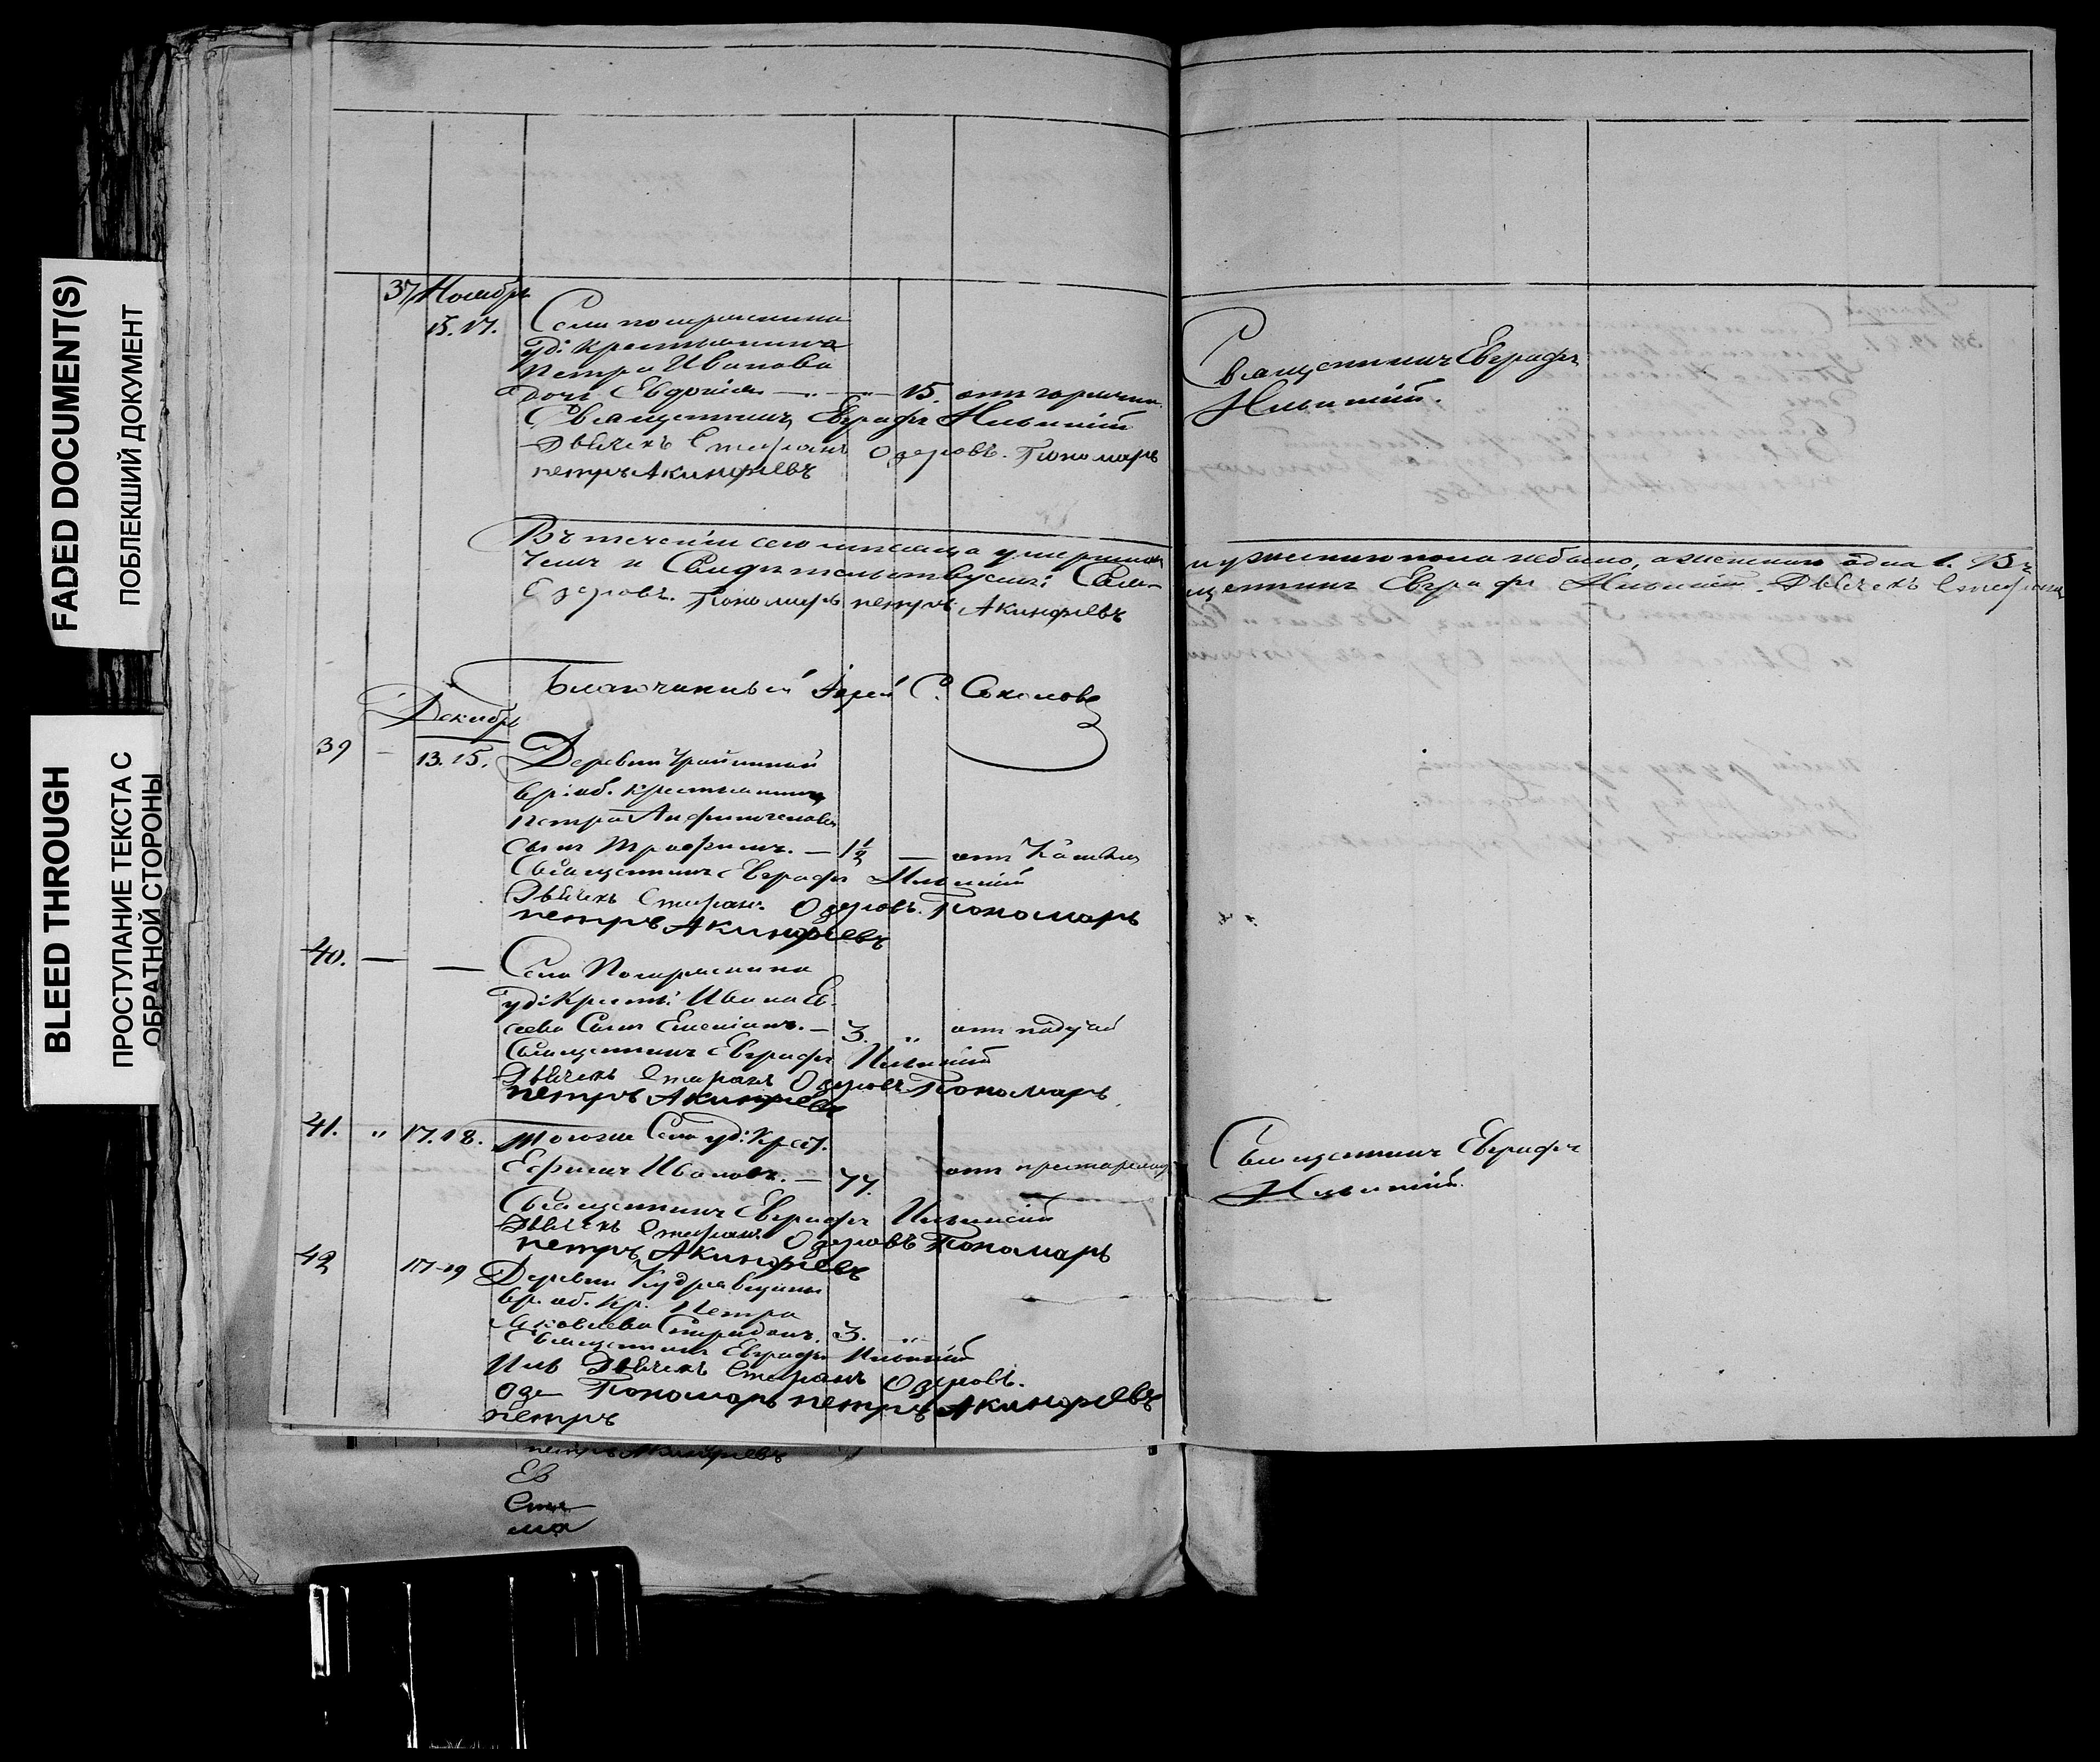 FADED DOCUMENT(S)
ПОБЛЕКШИЙ ДОКУМЕНТ
BLEED THROUGH
ПРОСТУПАНИЕ ТЕКСТА С
ОБРАТНОЙ СТОРОНЫ
37 Ноябрь
15. 17. Села
уд: крестьянина
Петра Иванова
дочь Евдокія — 15. отъ горячки
Священникъ Евграфъ Ильинскій
Дьячекъ Стефанъ Озеровъ. Пономарь
петръ Акинфіевъ
Священникъ Евграфъ
Ильинскій.
Въ теченіи сего мѣсяца умершихъ мужескаго пола небыло, а женскаго одна 1. Въ
чемъ и Свидѣтельствуемъ: Священникъ Евграфъ Ильинскій. Дьячекъ Стефанъ
Озеровъ. Пономарь петръ Акинфіевъ
Благочинный Іерей С. Соколовъ
Декабрь
39 — 13. 15. Деревни
вр: об. крестьянина
Петра
сынъ Трофимъ. — 1½ — отъ Кашля
Священникъ Евграфъ Ильинскій
Дьячекъ Стефанъ Озеровъ. Пономарь
петръ Акинфіевъ
40. — — Села
уд: Крест: Ивана Ев-
сеева Сынъ — 3. „ отъ
Священникъ Евграфъ Ильинскій
Дьячекъ Стефанъ Озеровъ Пономарь
петръ Акинфіевъ
41. „ 17. 18. Тогоже Села уд: Крест.
Ефимъ Ивановъ. — 77. отъ престарелости
Священникъ Евграфъ Ильинскій
Дьячекъ Стефанъ Озеровъ Пономарь
петръ Акинфіевъ
Священникъ Евграфъ
Ильинскій.
42 17-19 Деревни Кудрявщины
вр. об. Кр. Петра
Яковлева 3. „
Священникъ Евграфъ Ильинскій
Иль Дьячекъ Стефанъ Озеровъ.
Озе Пономарь петръ Акинфіевъ
петръ
петръ Акинфіевъ
Ев